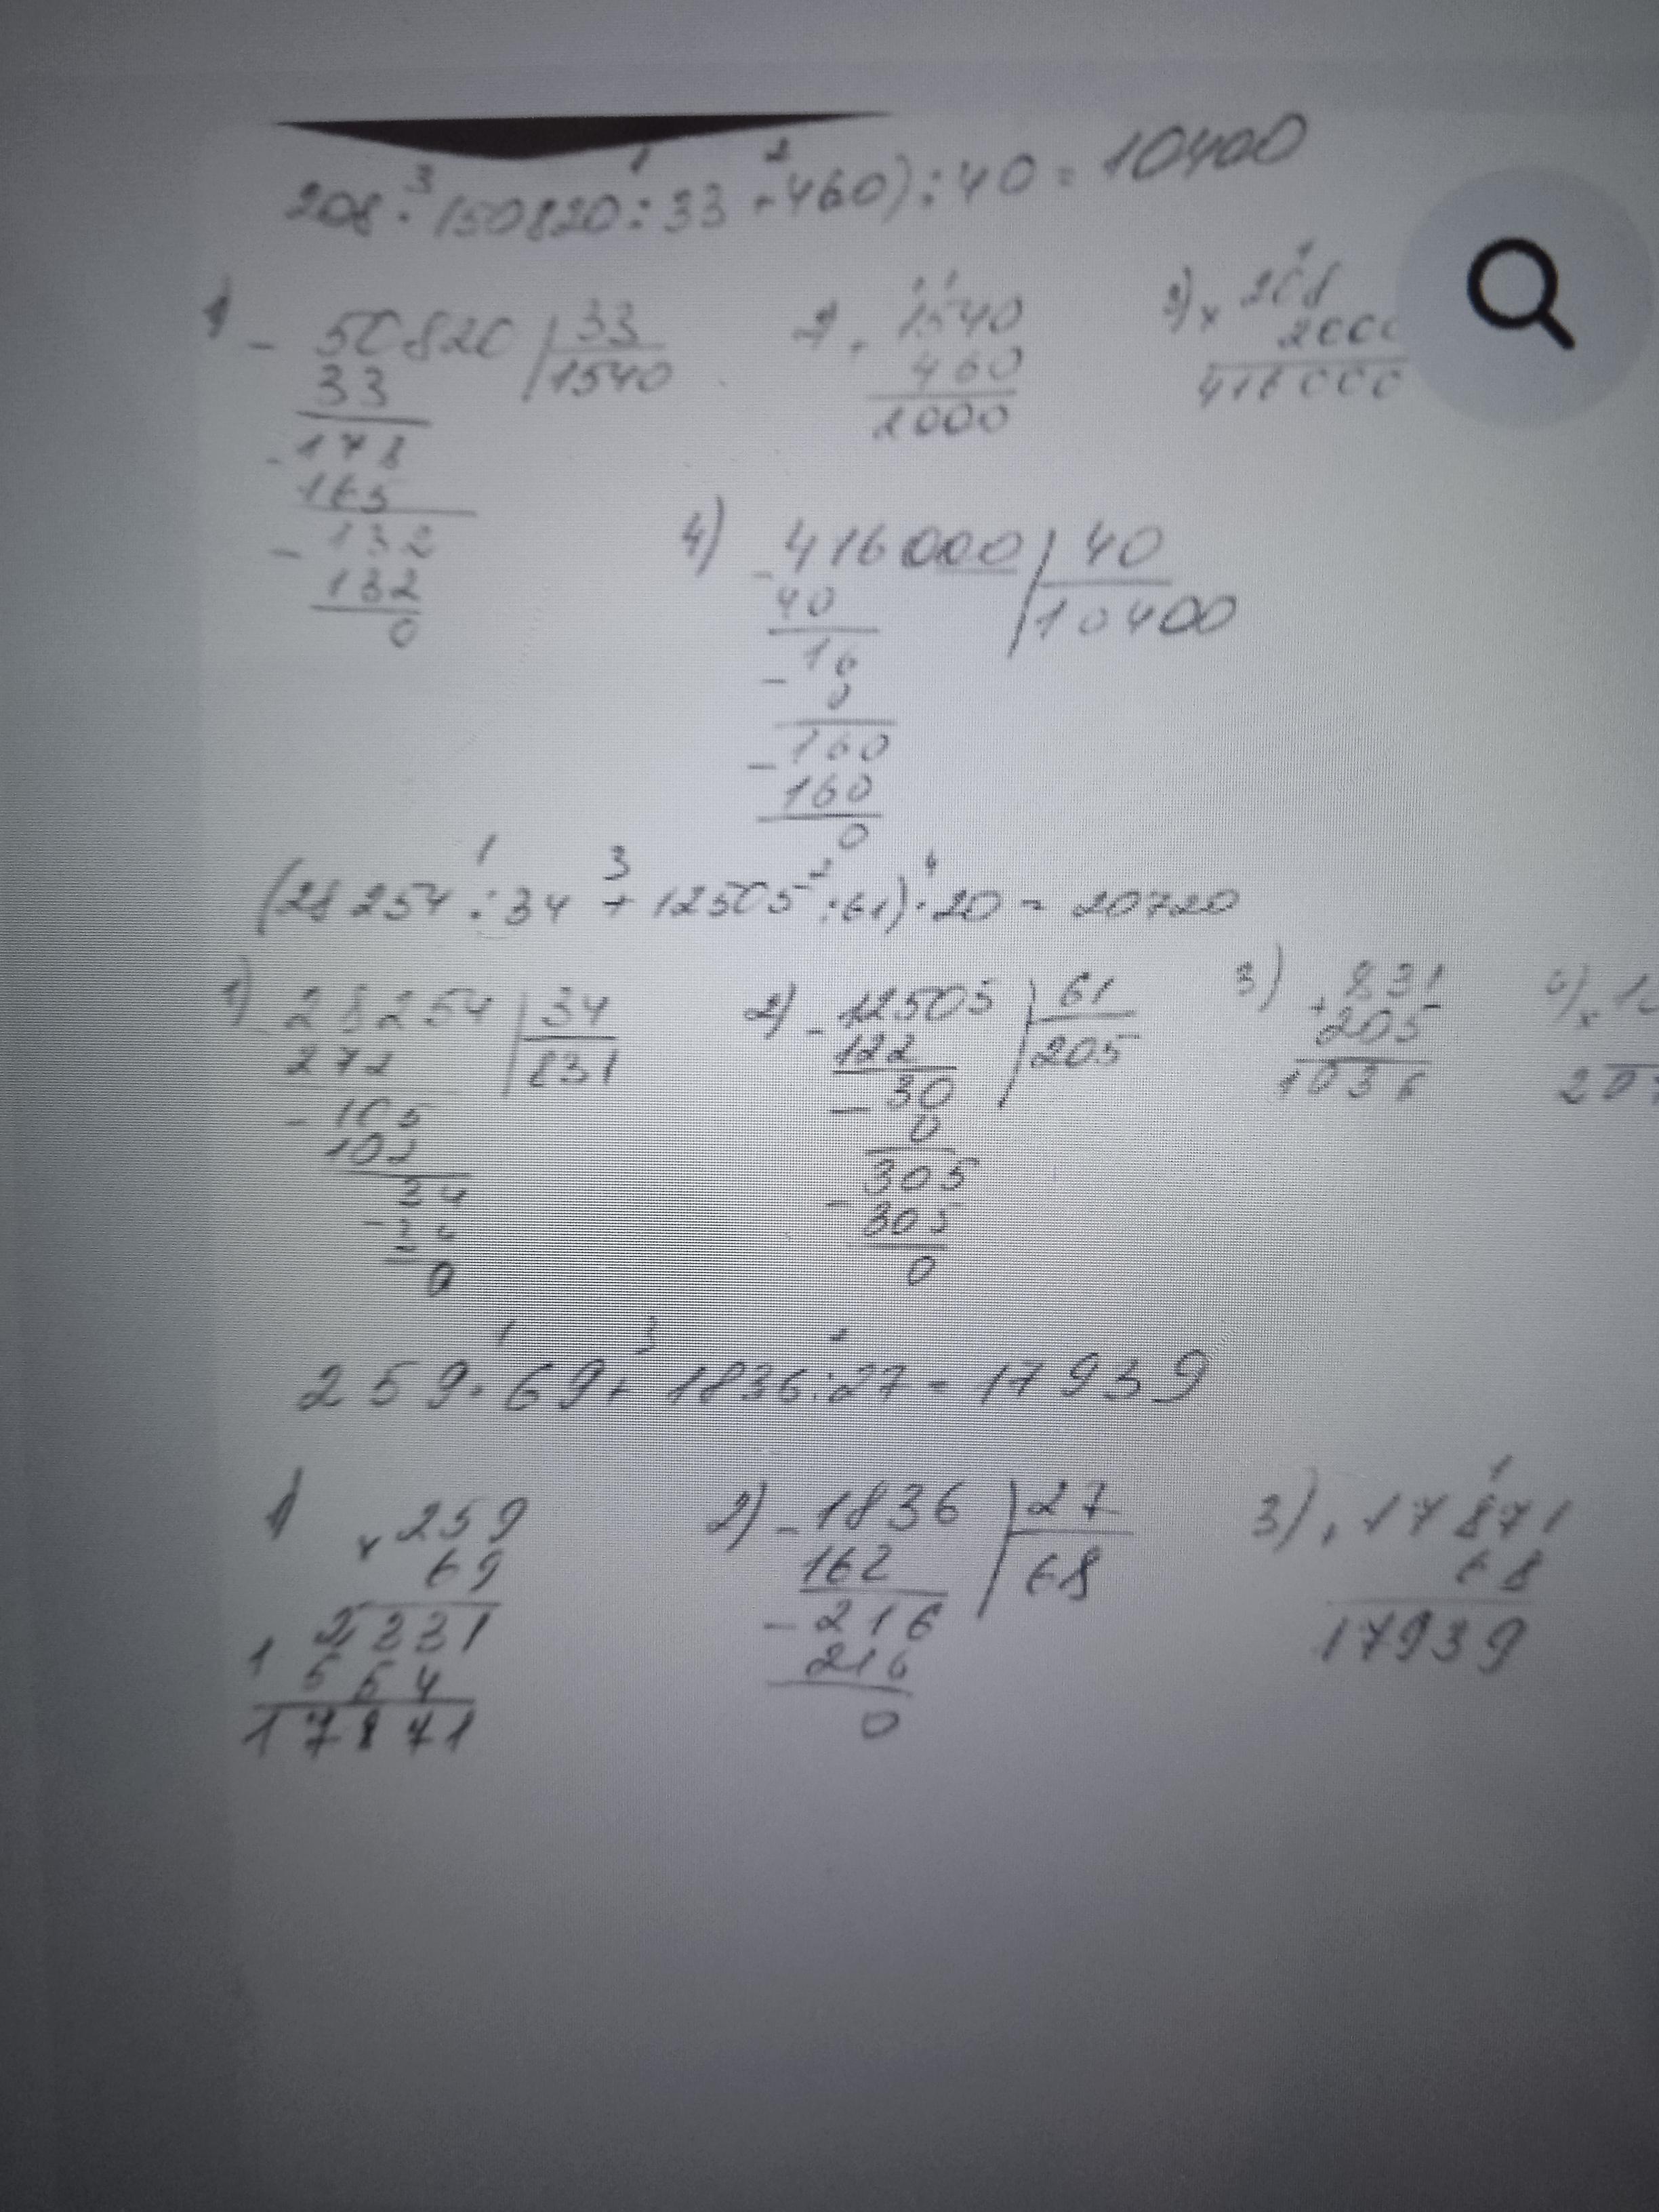 208 · (50820 : 33 + 460) : 40 = 10400
3 1 2
1) - 50820 | 33
33 | 1540
- 178
165
- 132
132
0
2) + 1540
460
2000
3) × 208
2000
416000
4) - 416000 | 40
40 | 10400
16
- 0
160
- 160
0
1 3 2 4
(28254 : 34 + 12505 : 61) · 20 = 20720
1) 28254 | 34
272 | 831
- 105
102
34
- 34
0
2) - 12505 | 61
122 | 205
- 30
0
305
- 305
0
3) + 831
205
1036
1 3 2
259 · 69 + 1836 : 27 = 17939
1) × 259
69
2331
1554
17871
2) - 1836 | 27
162 | 68
- 216
216
0
3) + 17871
68
17939